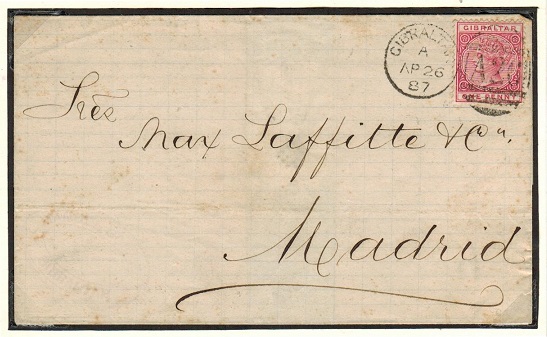 GIBRALTAR
A
AP 26
87
GIBRALTAR
ONE PENNY
Sres
Max Laffitte & Ca.
Madrid